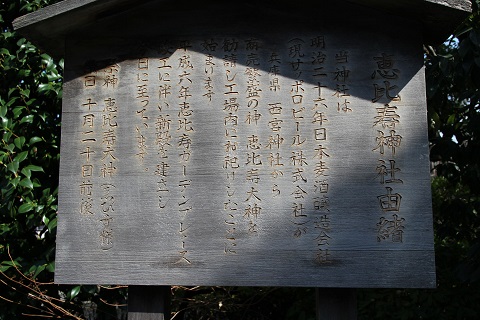 恵比寿神社由緒
当神社は
明治二十六年日本麦酒醸造会社
(現サッポロビール株式会社)が
兵庫県 西宮神社から
商売繁盛の神 恵比寿大神を
勧請し工場内に和祀りしたことに
始まります
平成六年恵比寿ガーデンプレース
竣工に伴い新社殿を建立し
今日に至っています
祭神 恵比寿大神
十月二十日前後